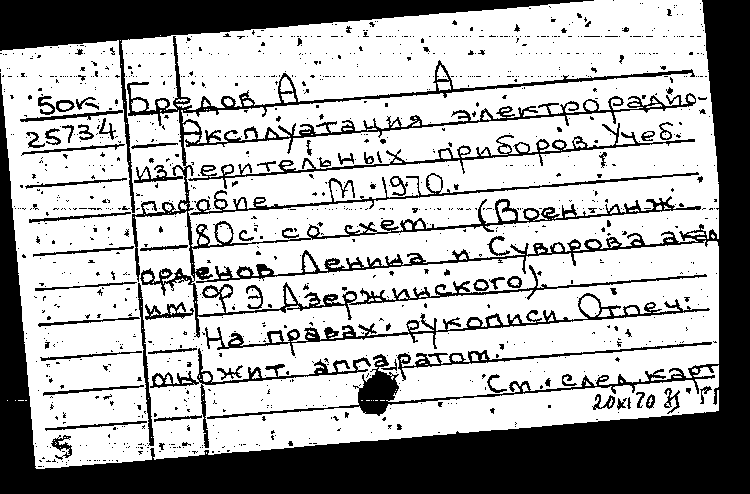 50к Бредов, А. А
25734 Эксплуатация электрорадио-
измерительных приборов. Учеб.
пособие. М., 1970.
80с. со схем. (Воен.-инж.
орденов Ленина и Суворова акад
им. Ф. Э. Дзержинского).
На правах рукописи. Отпеч.
множит. аппаратом.
См. след. карт
20 XI 70
S